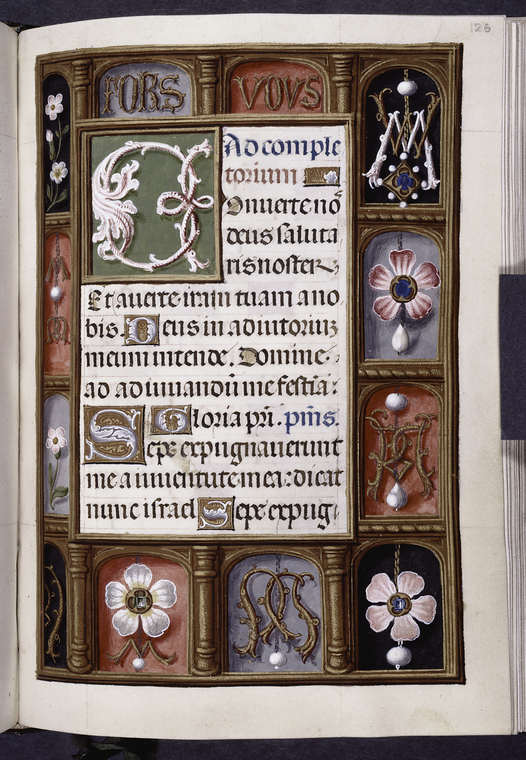 126
FORS VOVS
Ad comple
torium
Conuerte nō
deus saluta
ris noster
Et auerte iram tuam a no
bis. Deus in adiutoriuꝫ
meum intende. Domine
ad adiuuandū me festia:
Gloria pri. pm̄s.
Sepe expugnauerunt
me a iuuentute mea: dicat
nunc israel Sepe expug